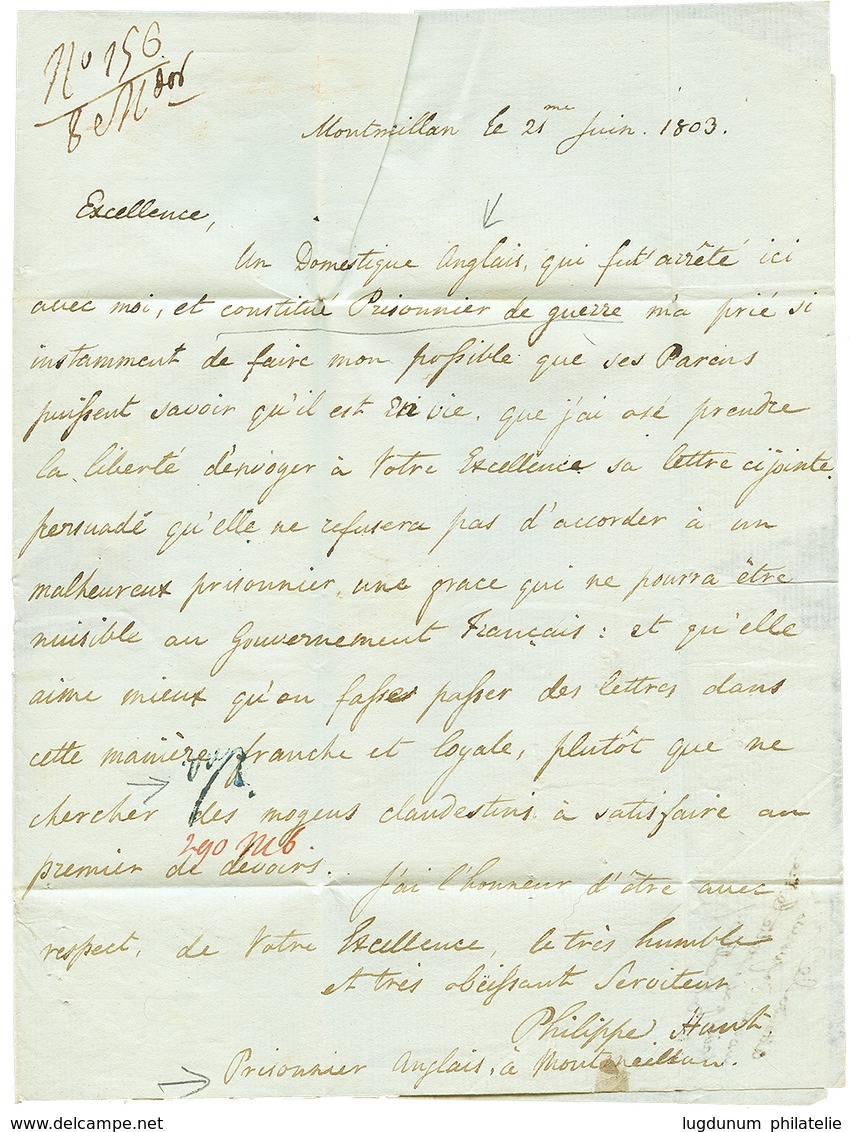 No 156
8 e M dos
Montmeillan le 21me Juin. 1803.
Excellence,
Un Domestique Anglais, qui fut arrêté ici
avec moi, et constitué Prisonnier de guerre m'a prié si
instamment de faire mon possible que ses Parens
puissent savoir qu'il est en vie, que j'ai osé prendre
la liberté d'envoyer à Votre Excellence sa lettre cijointe
persuadé qu'elle ne refusera pas d'accorder à un
malheureux prisonnier, une grace qui ne pourra être
nuisible au Gouvernement Français: et qu'elle
aime mieux qu'on fasse passer des lettres dans
cette manière franche et loyale, plutôt que ne
chercher des moyens clandestins à satisfaire au
290 M6
premier de devoirs. J'ai l'honneur d'être avec
respect, de Votre Excellence, le très humble
et très obéissant Serviteur
Philippe
Prisonnier Anglais, à Montmeillan.
delcampe.net
lugdunum philatelie